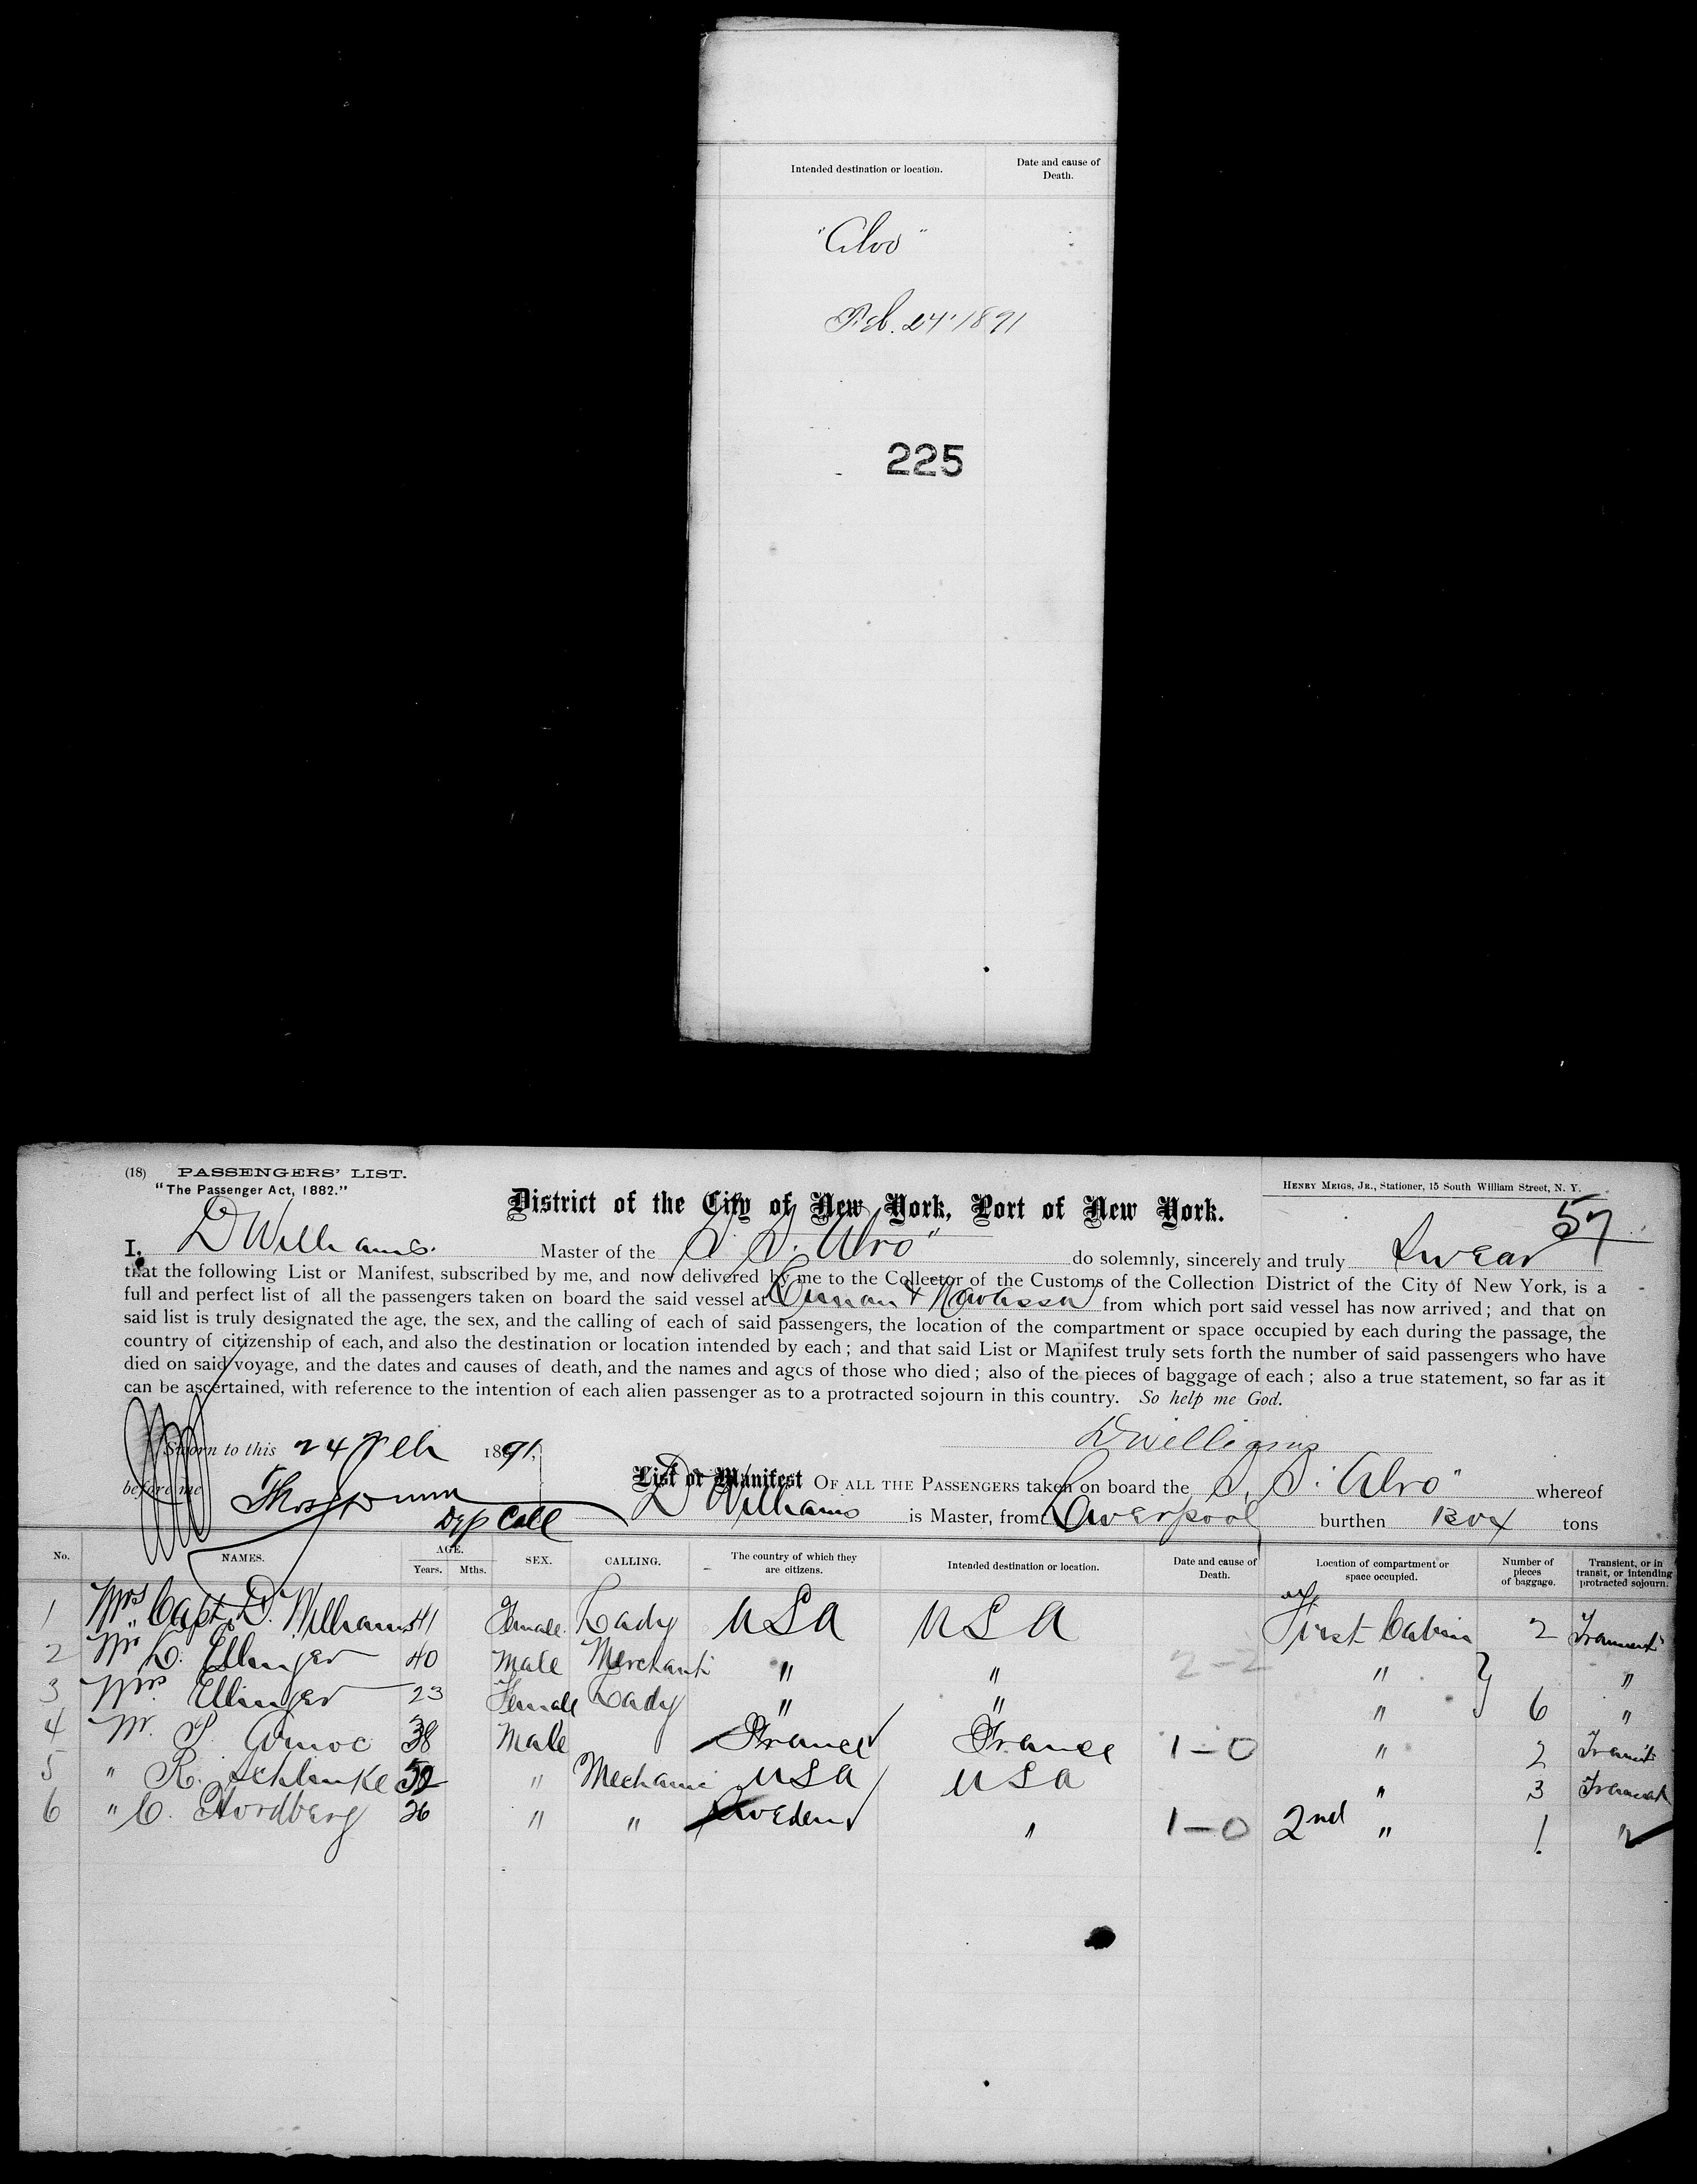 Intended destination or location. Date and cause of Death.
"Alvo"
Feb. 24' 1891
225
(18) PASSENGERS' LIST.
"The Passenger Act, 1882."
HENRY MEIGS, JR., Stationer, 15 South William Street, N. Y.
District of the City of New York, Port of New York.
57
I, D Williams. Master of the S. S. "Alvo" do solemnly, sincerely and truly Swear
that the following List or Manifest, subscribed by me, and now delivered by me to the Collector of the Customs of the Collection District of the City of New York, is a
full and perfect list of all the passengers taken on board the said vessel at & Navassa from which port said vessel has now arrived; and that on
said list is truly designated the age, the sex, and the calling of each of said passengers, the location of the compartment or space occupied by each during the passage, the
country of citizenship of each, and also the destination or location intended by each; and that said List or Manifest truly sets forth the number of said passengers who have
died on said voyage, and the dates and causes of death, and the names and ages of those who died; also of the pieces of baggage of each; also a true statement, so far as it
can be ascertained, with reference to the intention of each alien passenger as to a protracted sojourn in this country. So help me God.
Sworn to this 24 Feb 1891,
D Williams
before me
Dep Coll
List or Manifest OF ALL THE PASSENGERS taken on board the S. S. "Alvo" whereof
D Williams is Master, from Liverpool burthen tons
No. NAMES. AGE. Years. Mths. SEX. CALLING. The country of which they are citizens. Intended destination or location. Date and cause of Death. Location of compartment or space occupied. Number of pieces of baggage. Transient, or in transit, or intending protracted sojourn.
1 Mrs. Capt. D. Williams 41 Female. Lady USA USA First Cabin 2 Transient
2 Mr L. Ellinger 40 Male Merchant " " 2-2 " "
3 Mrs. Ellinger 23 Female Lady " " " 6 "
4 Mr. P. 38 Male France France 1-0 " 2 Transit
5 " R. Schlinke 52 " Mechanic USA USA " 3 Transient
6 " C. Nordberg 26 " " Sweden " 1-0 2nd " 1 "